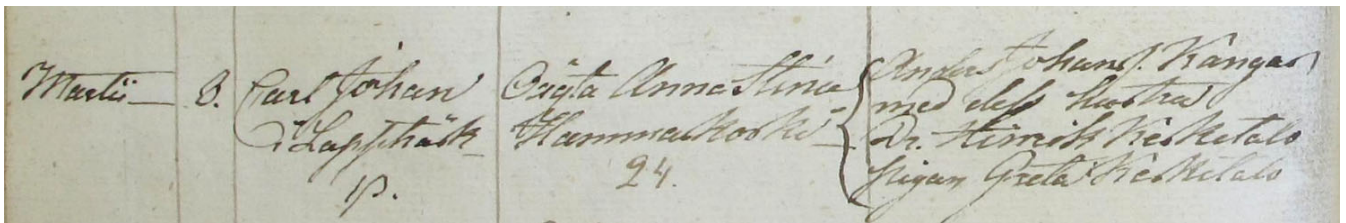 Martii 8. Carl Johan
i Lappträsk
Oägta Anna Stina
Hammarkoski
24.
Anders Johans. Kangas
med dess hustru
Dr. Henrik Keskitalo
pigan Greta Keskitalo